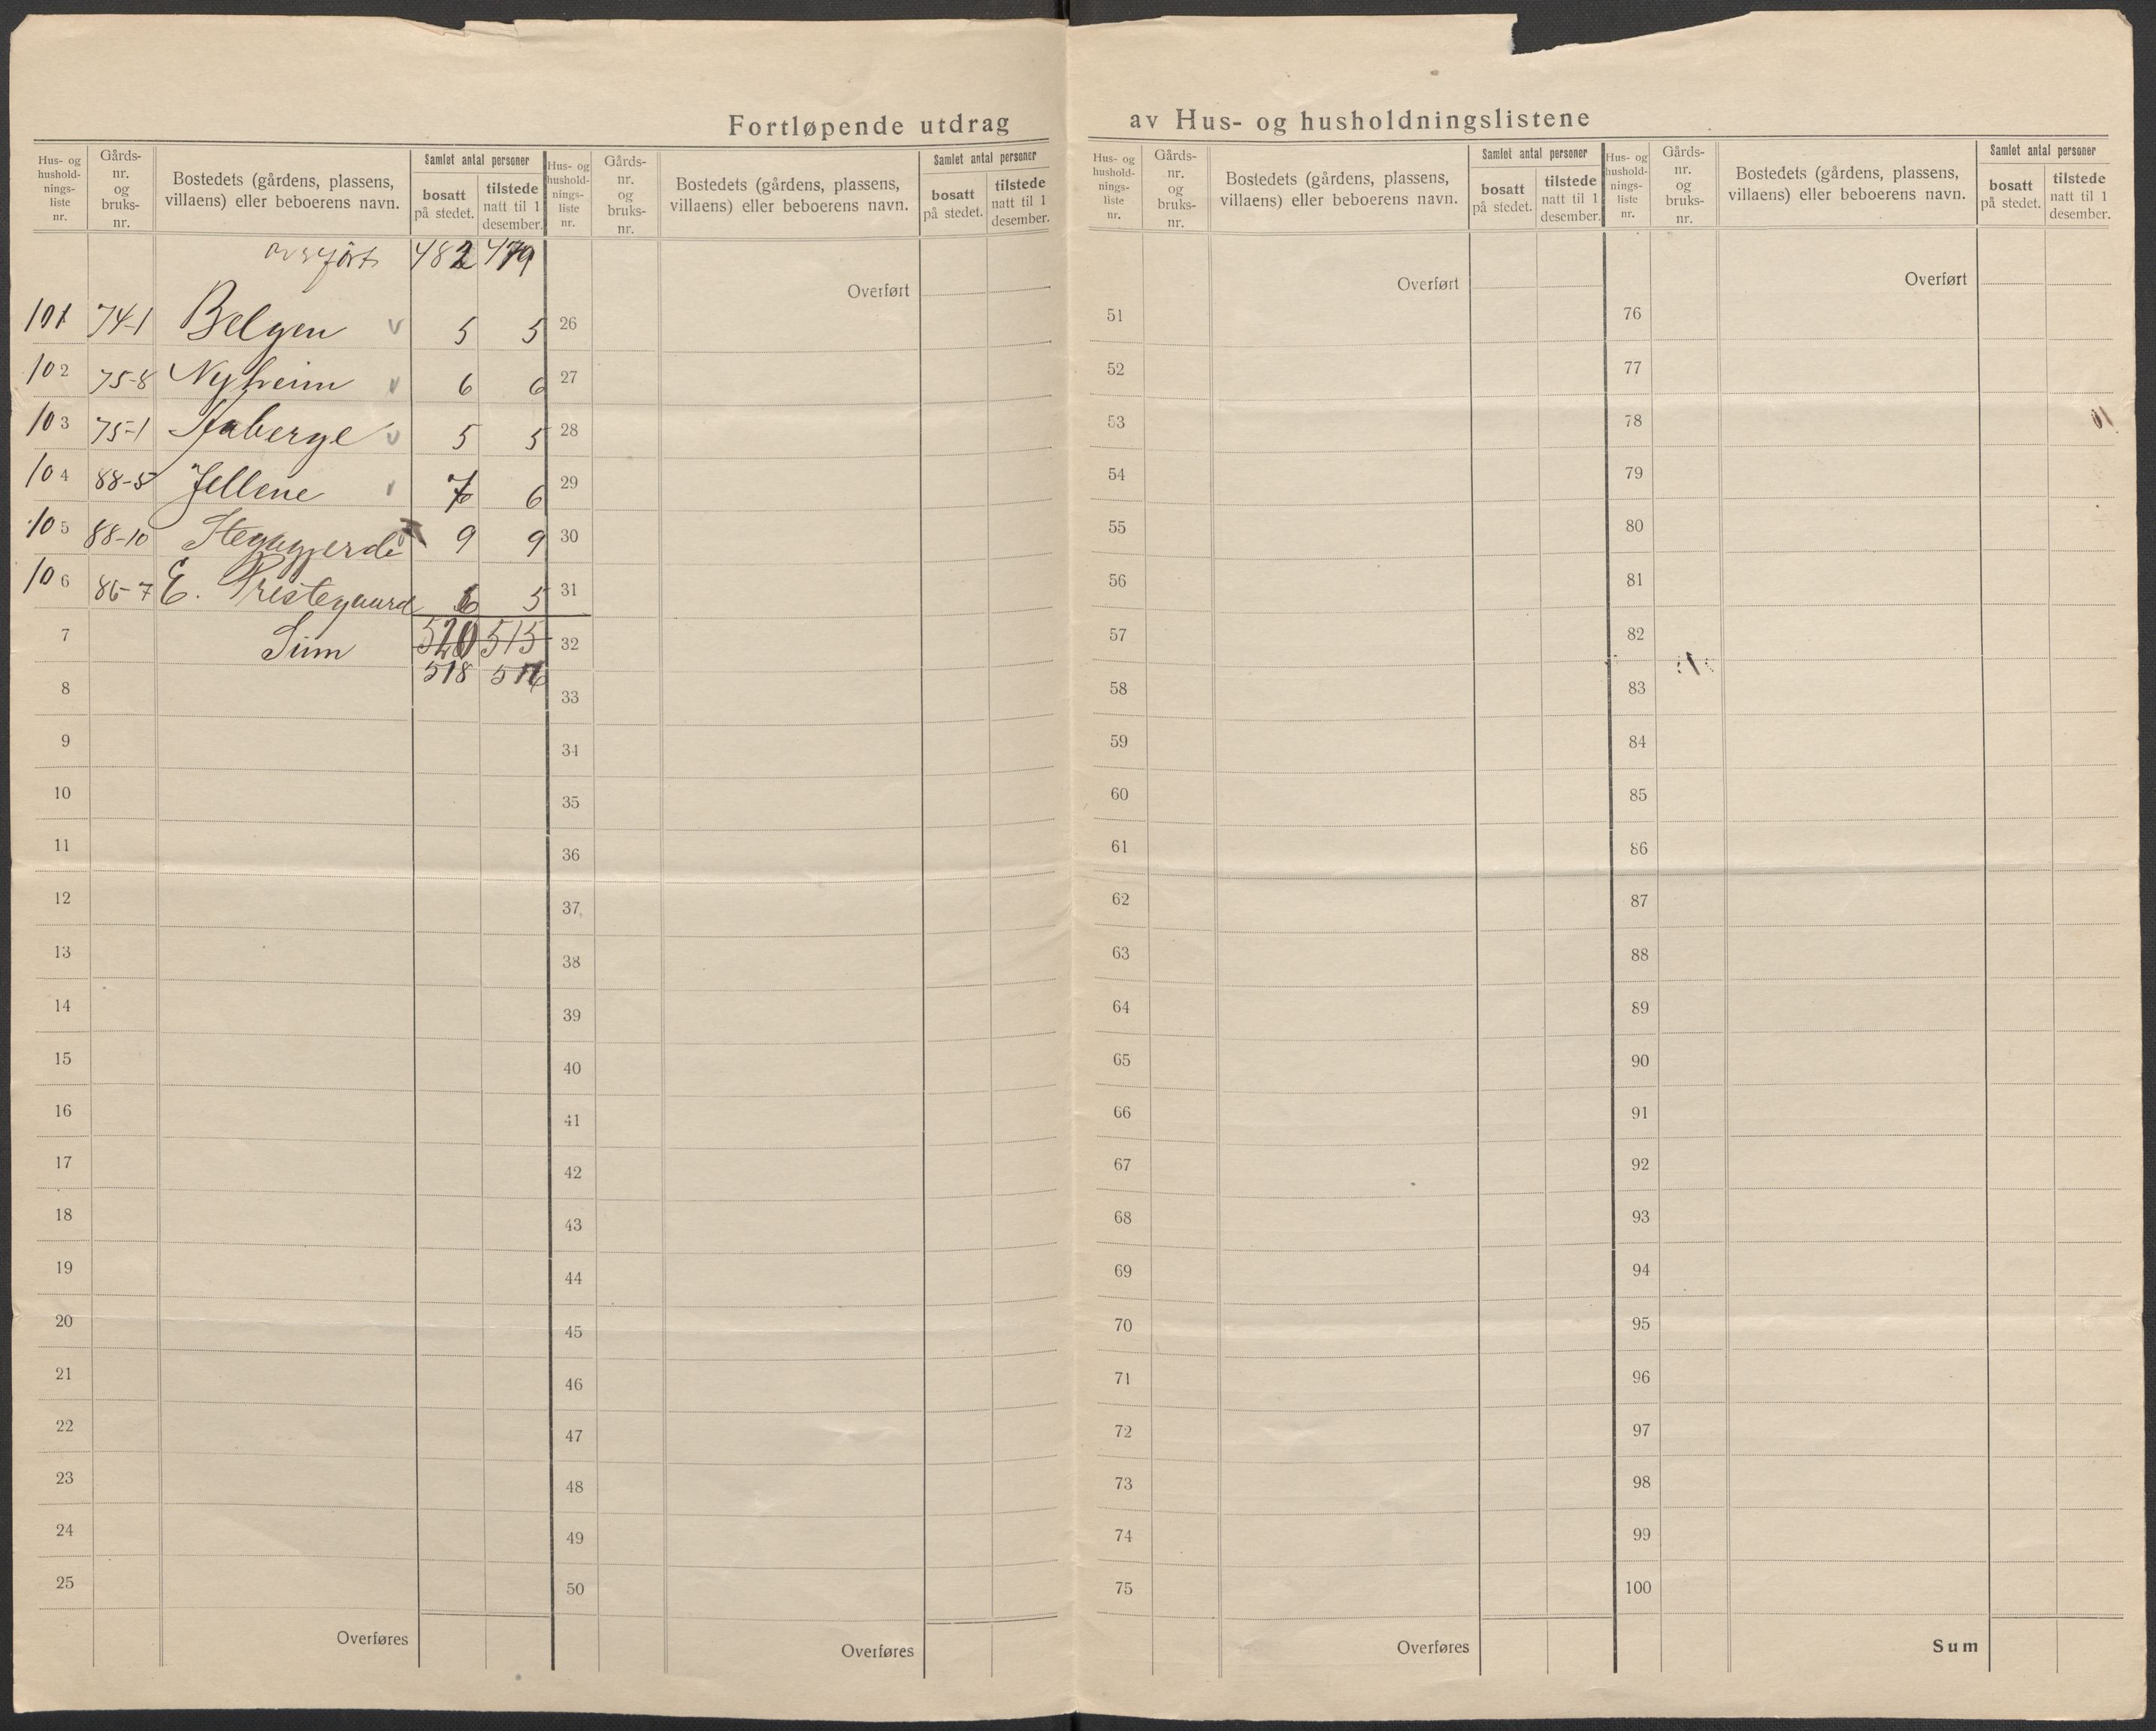 Fortløpende utdrag av Hus- og husholdningslistene
Hus- og
hushold-
nings-
liste
nr.
Gårds-
nr.
og
bruks-
nr.
Bostedets (gårdens, plassens,
villaens) eller beboerens navn.
Samlet antal personer
bosatt
på stedet.
tilstede
natt til 1
desember.
overført 482 479
101 74-1 Belgen v 5 5
102 75-8 Nyheim v 6 6
103 75-1 Aaberge v 5 5
104 88-5 Jellene v 7 6
105 88-10 Heggagjerde 9 9
106 86-7 E. Prestegaard 6 5
7 Sum 520 515
518 516
8
9
10
11
12
13
14
15
16
17
18
19
20
21
22
23
24
25
Overføres
Hus- og
hushold-
nings-
liste
nr.
Gårds-
nr.
og
bruks-
nr.
Bostedets (gårdens, plassens,
villaens) eller beboerens navn.
Samlet antal personer
bosatt
på stedet.
tilstede
natt til 1
desember.
Overført
26
27
28
29
30
31
32
33
34
35
36
37
38
39
40
41
42
43
44
45
46
47
48
49
50
Overføres
Hus- og
hushold-
nings-
liste
nr.
Gårds-
nr.
og
bruks-
nr.
Bostedets (gårdens, plassens,
villaens) eller beboerens navn.
Samlet antal personer
bosatt
på stedet.
tilstede
natt til 1
desember.
Overført
51
52
53
54
55
56
57
58
59
60
61
62
63
64
65
66
67
68
69
70
71
72
73
74
75
Overføres
Hus- og
hushold-
nings-
liste
nr.
Gårds-
nr.
og
bruks-
nr.
Bostedets (gårdens, plassens,
villaens) eller beboerens navn.
Samlet antal personer
bosatt
på stedet.
tilstede
natt til 1
desember.
Overført
76
77
78
79
80
81
82
83
84
85
86
87
88
89
90
91
92
93
94
95
96
97
98
99
100
Sum